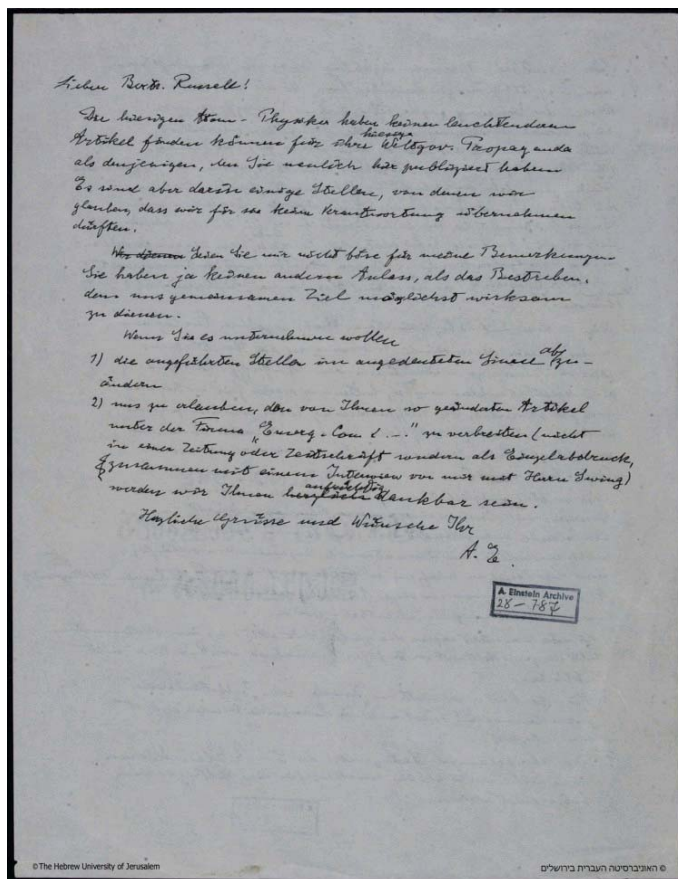 Lieber Bertr. Russell!
Die hiesigen Atom-Physiker haben keinen leuchtenderen
hiesige
Artikel finden können für ihre Weltgov. Propaganda
als denjenigen, den Sie neulich hier publiziert haben.
Es sind aber darin einige Stellen, von denen wir
glauben, dass wir für sie keine Verantwortung übernehmen
dürften.
Seien Sie mir nicht böse für meine Bemerkungen.
Sie haben ja keinen andern Anlass, als das Bestreben,
dem uns gemeinsamen Ziel möglichst wirksam
zu dienen.
Wenn Sie es unternehmen wollen
1) die angeführten Stellen im angedeuteten Sinne abzu-
ändern
2) uns zu erlauben, den von Ihnen so geänderten Artikel
unter der Firma "Emerg. Com" zu verbreiten (nicht
in einer Zeitung oder Zeitschrift sondern als Einzelabdruck,
zusammen mit einem Interview von mir mit Herrn Swing)
aufrichtig
werden wir Ihnen herzlich dankbar sein.
Herzliche Grüsse und Wünsche Ihr
A. E.
A. Einstein Archive
28-787
© The Hebrew University of Jerusalem
© האוניברסיטה העברית בירושלים